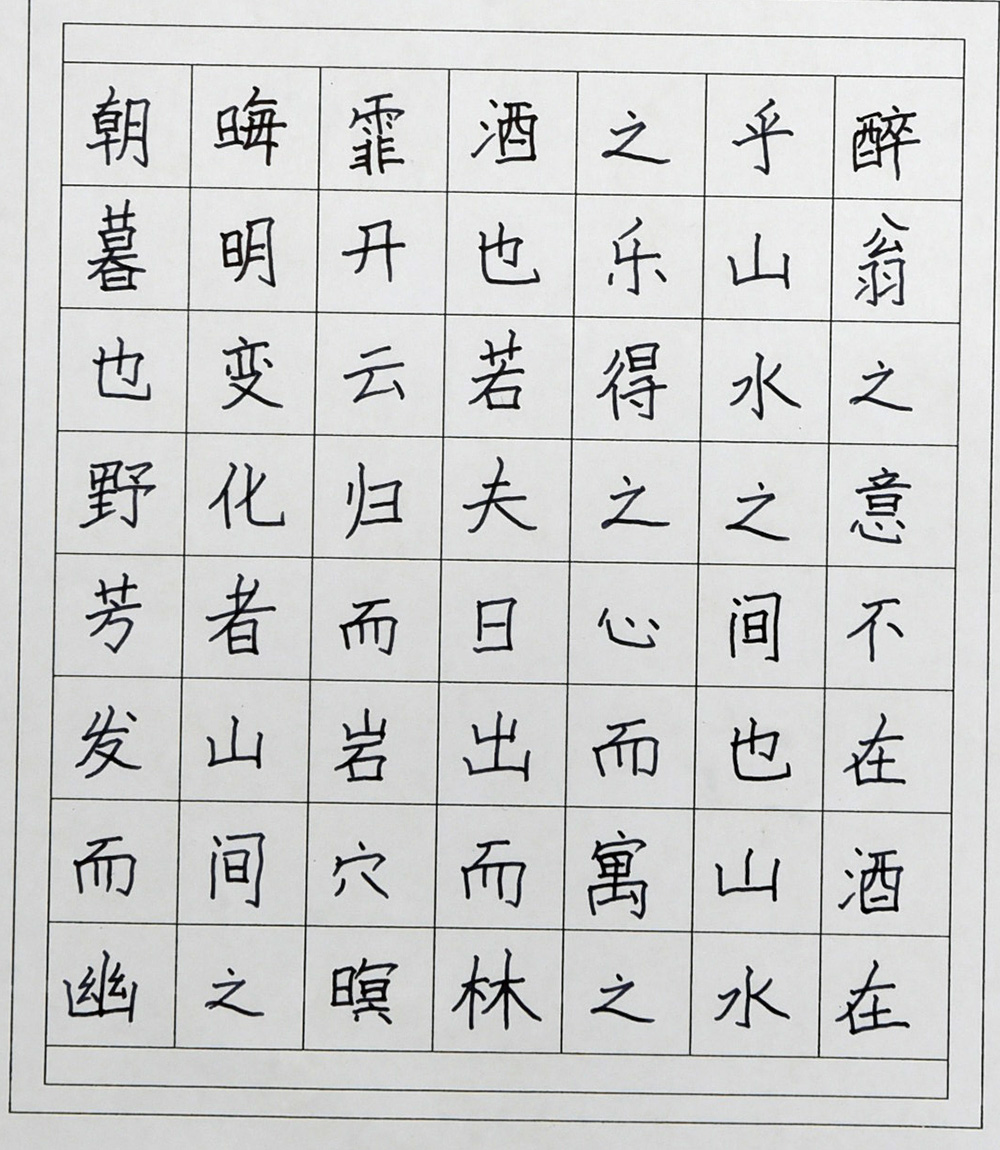 醉翁之意不在酒在
乎山水之间也山水
之乐得之心而寓之
酒也若夫日出而林
霏开云归而岩穴暝
晦明变化者山间之
朝暮也野芳发而幽